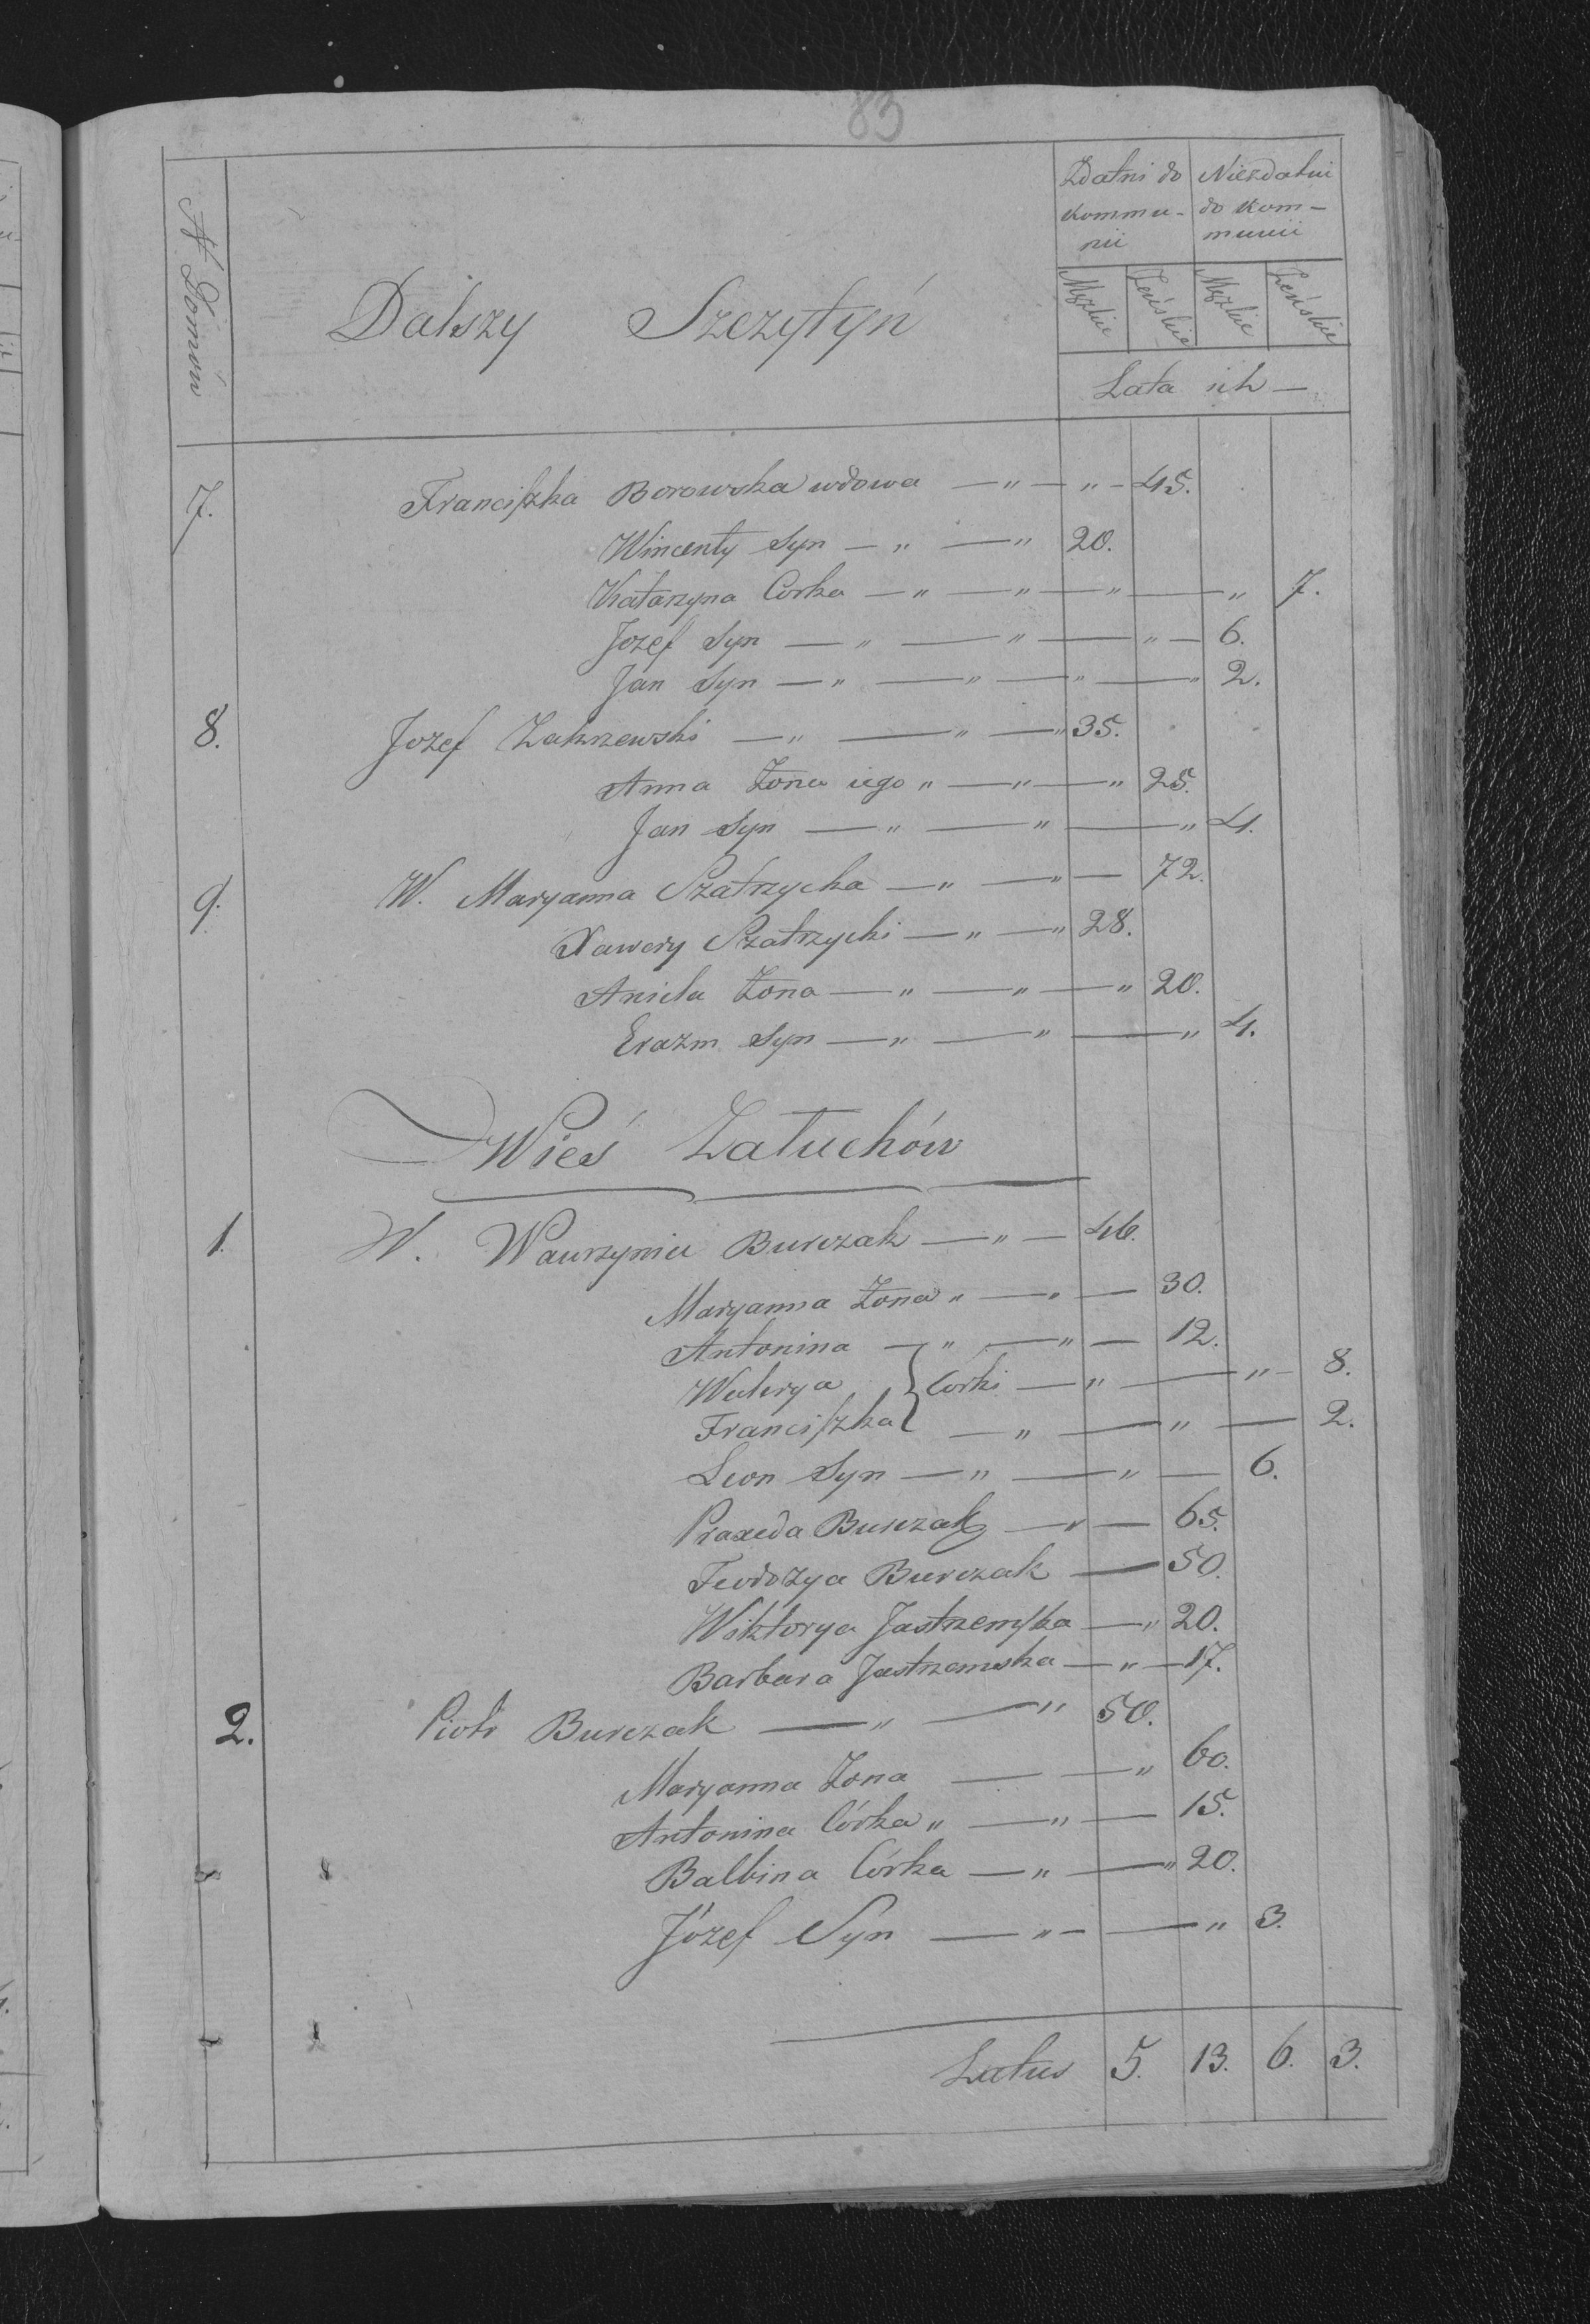 83
N. Domów
Zdatni do kommunii
Niezdatni do kommunii
Męzkie Żeńskie Męzkie Żeńskie
Dalszy Szczytyń
Lata ich —
7. Franciszka Borowska wdowa — " — " — 45.
Wincenty Syn — " — " 20.
Katarzyna Corka — " — " — " — " 7.
Jozef Syn — " — " — " — 6.
Jan Syn — " — " — " — " 2.
8. Jozef Zakrzewski — " — " — " 35.
Anna Żona iego " — " — " 25.
Jan Syn — " — " — " 4.
9. W. Maryanna Szatrzycka — " — " — 72.
Xawery Szatrzycki — " — " 28.
Aniela Żona — " — " — " 20.
Erazm Syn — " — " — " 4.
Wieś Załuchów
1. W. Wawrzyniec Burczak — " — 46.
Maryanna Żona " — " — 30.
Antonina — " — " — 12.
Walerya } Corki — " — " — 8.
Franciszka — " — " — 2.
Leon Syn — " — " — 6.
Praxeda Burczak — " — 65.
Teodozya Burczak — 50.
Wiktorya Jastrzemska — " 20.
Barbara Jastrzemska — " — 17.
2. Piotr Burczak — " — " 50.
Maryanna Żona — — " 60.
Antonina Córka " — " — 15.
Balbina Córka — " — " 20.
Józef Syn — " — — " 3.
Latus 5. 13. 6. 3.